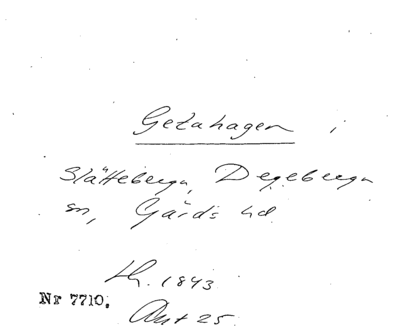 Getahagen i
Slättebergn, Degebergn
sn, Gärds hd
Lh. 1843
Nr 7710.
Akt 25